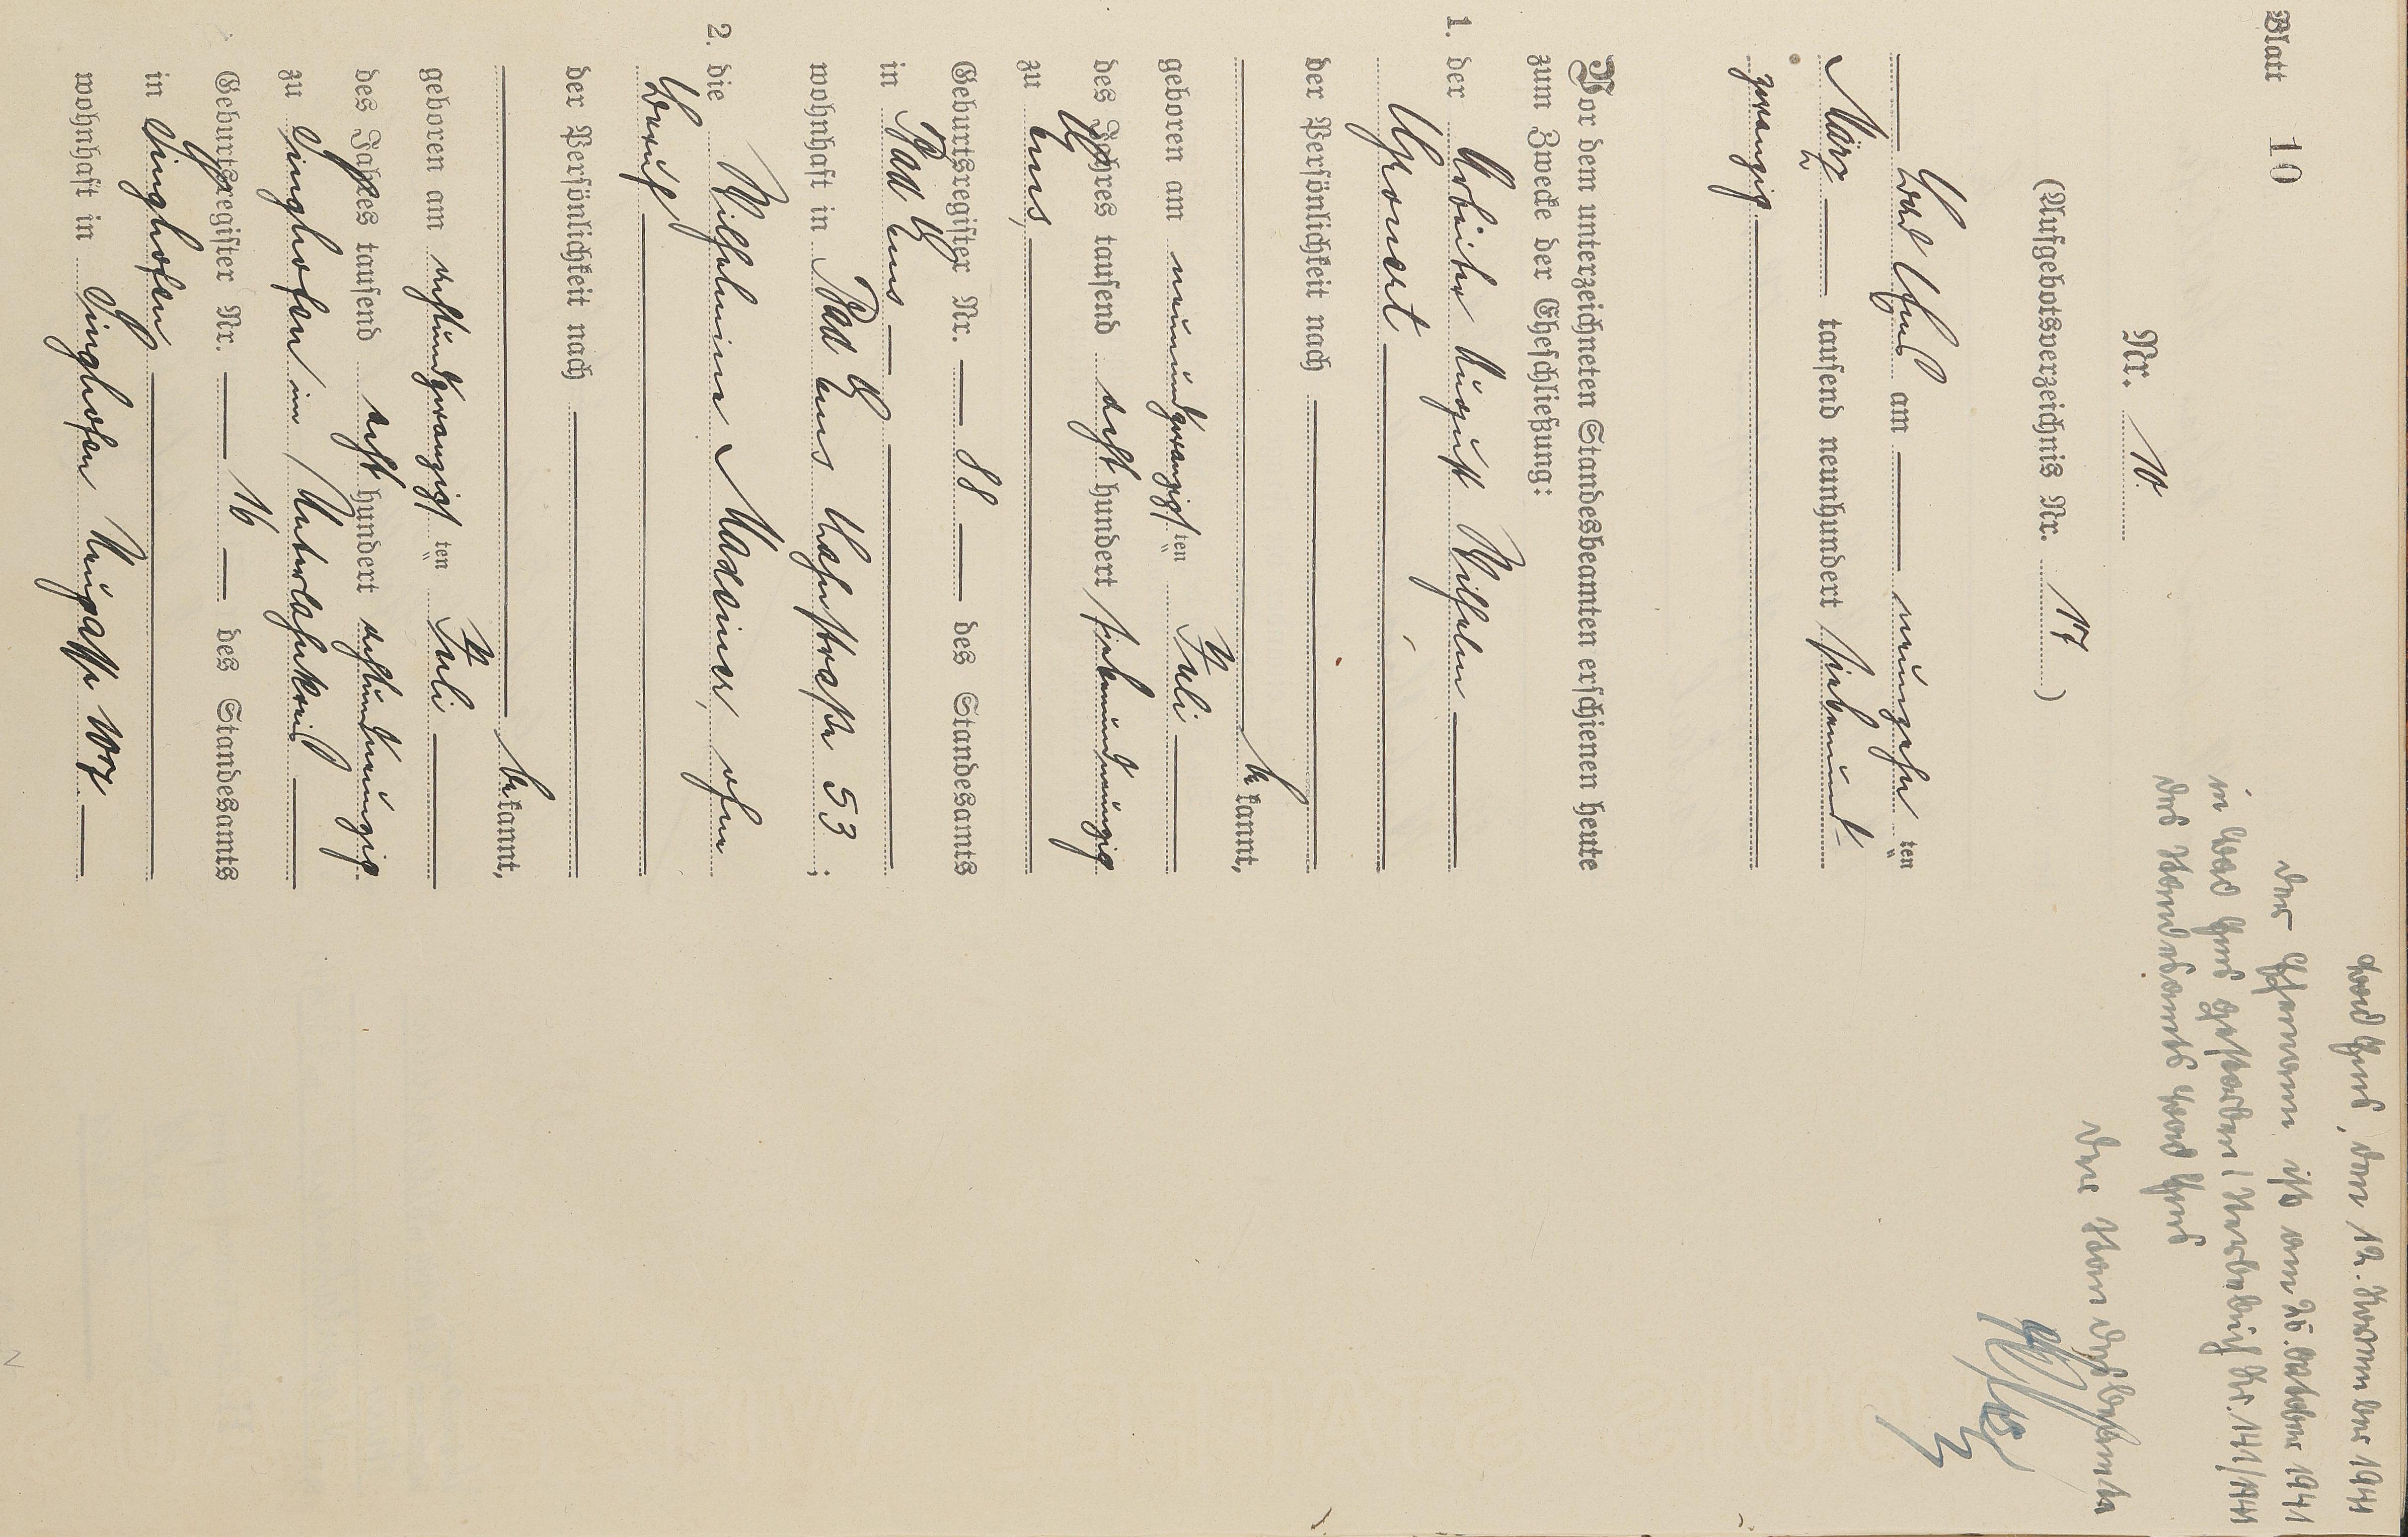 Blatt 10
Bad Ems, den 12. November 1941
Der Ehemann ist am 25. Oktober 1941
in Bad Ems gestorben (Sterbebuch Nr. 141/1941
des Standesamts Bad Ems
Der Standesbeamte
Nr. 10.
(Aufgebotsverzeichnis Nr. 17)
Bad Ems am neunzehnten
März tausend neunhundert siebenund-
zwanzig
Vor dem unterzeichneten Standesbeamten erschienen heute
zum Zwecke der Eheschließung:
1. der Arbeiter August Wilhelm
der Persönlichkeit nach
bekannt,
geboren am neunundzwanzigsten Juli
des Jahres tausend acht hundert siebenundneunzig
zu Ems,
Geburtsregister Nr. 88 des Standesamts
in Bad Ems
wohnhaft in Bad Ems Lahnstraße 53;
2. die Wilhelmine Madeiner, ohne
Beruf
der Persönlichkeit nach
bekannt,
geboren am achtundzwanzigsten Juli
des Jahres tausend acht hundert achtundneunzig
zu Singhofen im Unterlahnkreis
Geburtsregister Nr. 16 des Standesamts
in Singhofen
wohnhaft in Singhofen 107.